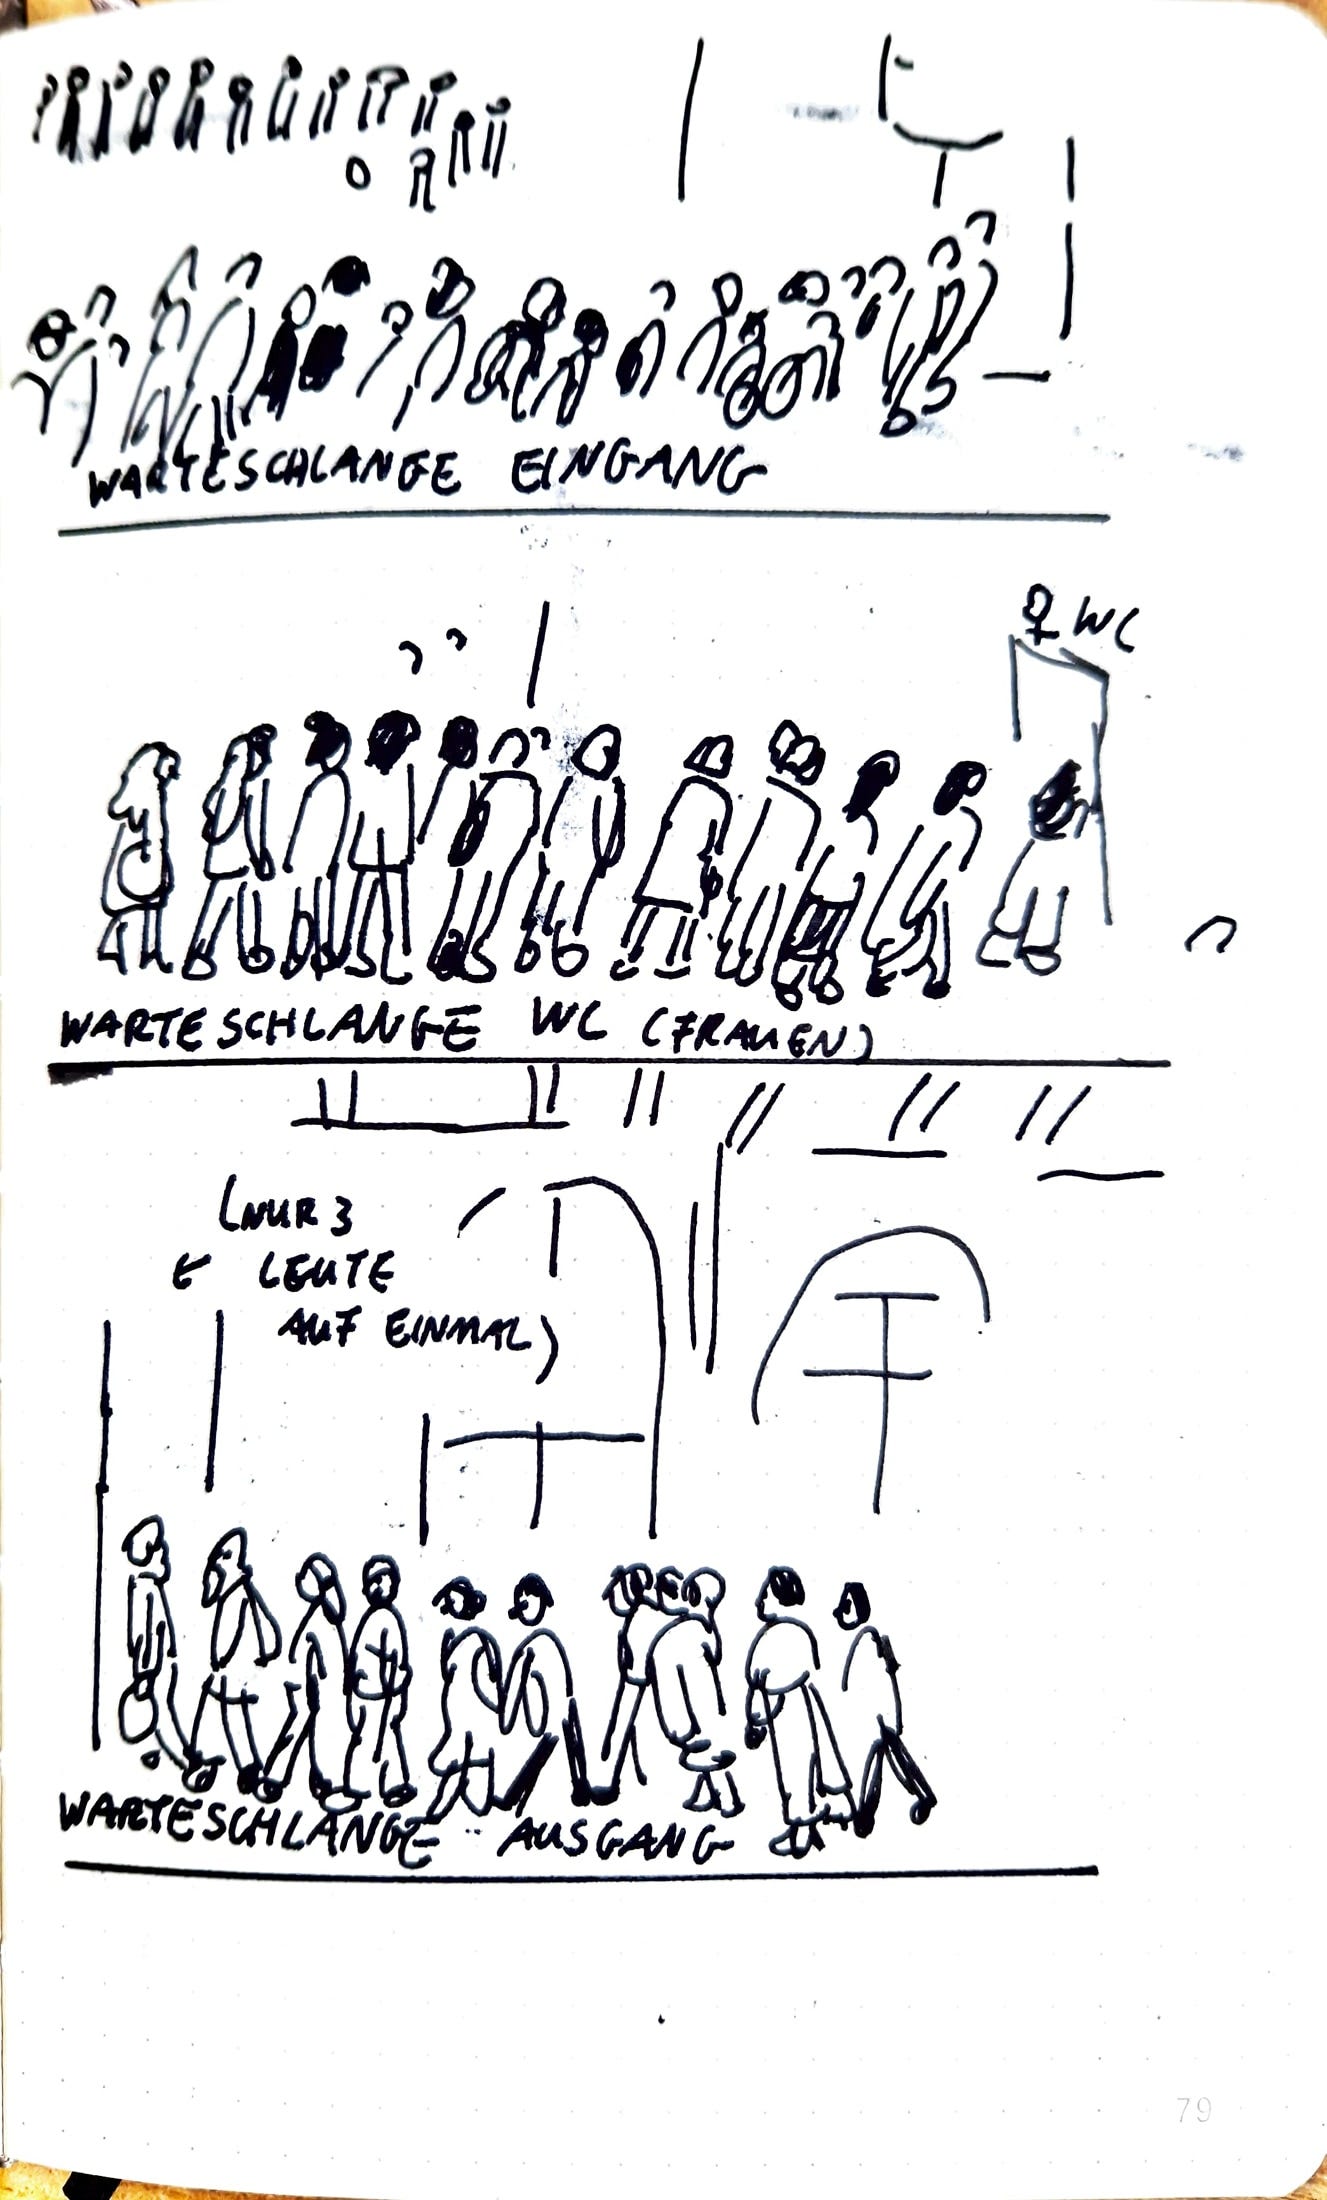 WARTESCHLANGE EINGANG
♀ WC
WARTESCHLANGE WC (FRAUEN)
(NUR 3
← LEUTE
AUF EINMAL)
WARTESCHLANGE AUSGANG
79